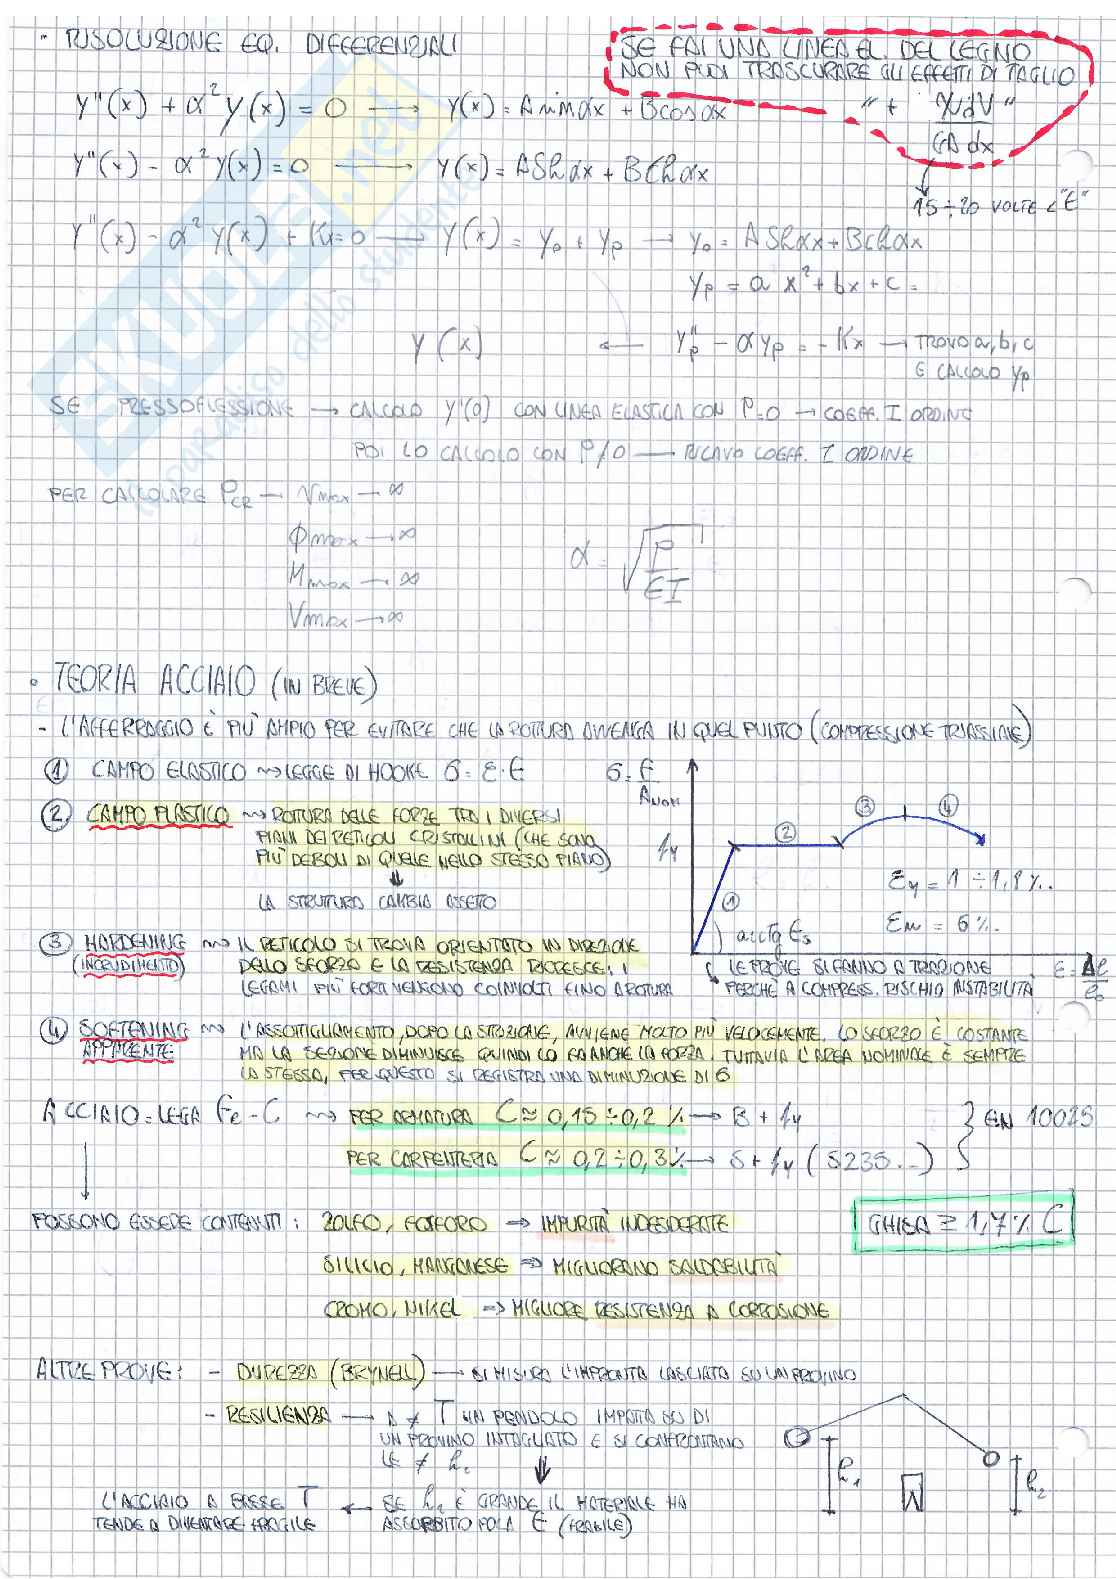 - RISOLUZIONE EQ. DIFFERENZIALI
SE FAI UNA LINEA EL. DEL LEGNO
NON PUOI TRASCURARE GLI EFFETTI DI TAGLIO
" + χ dV "
GA dx
15÷20 VOLTE < "E"
y''(x) + α² y(x) = 0 → y(x) = A sin αx + B cos αx
y''(x) - α² y(x) = 0 → y(x) = A Sh αx + B Ch αx
y''(x) - α² y(x) + Kx = 0 → y(x) = y₀ + yp → y₀ = A Sh αx + B ch αx
yp = a x² + bx + c =
y(x) ← yp'' - α yp = - Kx → TROVO a, b, c
E CALCOLO yp
SE PRESSOFLESSIONE → CALCOLO y'(0) CON LINEA ELASTICA CON P=0 → COEFF. I ORDINE
POI LO CALCOLO CON P≠0 → RICAVO COEFF. I ORDINE
PER CALCOLARE PCR → Vmax → ∞
ϕmax → ∞
Mmax → ∞
Vmax → ∞
α = √P/EI
• TEORIA ACCIAIO (IN BREVE)
- L'AFFERRAGGIO È PIÙ AMPIO PER EVITARE CHE LA ROTTURA AVVENGA IN QUEL PUNTO (COMPRESSIONE TRIASSIALE)
① CAMPO ELASTICO ⇝ LEGGE DI HOOKE σ = ε · E
② CAMPO PLASTICO ⇝ ROTTURA DELLE FORZE TRA I DIVERSI
PIANI DEI RETICOLI CRISTALLINI (CHE SONO
PIÙ DEBOLI DI QUELLE NELLO STESSO PIANO)
⇓
LA STRUTTURA CAMBIA ASSETTO
③ HARDENING ⇝ IL RETICOLO SI TROVA ORIENTATO IN DIREZIONE
(INCRUDIMENTO) DELLO SFORZO E LA RESISTENZA RICRESCE; I
LEGAMI PIÙ FORTI VENGONO COINVOLTI FINO A ROTTURA
σ = F
ANOM
fy
① ② ③ ④
εy = 1 ÷ 1,8 ‰
εu = 6 %
arctg Es
LE PROVE SI FANNO A TRAZIONE
PERCHÉ A COMPRESS. RISCHIO INSTABILITÀ
ε = Δℓ
ℓ₀
④ SOFTENING ⇝ L'ASSOTTIGLIAMENTO, DOPO LA STRIZIONE, AVVIENE MOLTO PIÙ VELOCEMENTE. LO SFORZO È COSTANTE
APPARENTE MA LA SEZIONE DIMINUISCE QUINDI LO FA ANCHE LA FORZA. TUTTAVIA L'AREA NOMINALE È SEMPRE
LA STESSA, PER QUESTO SI REGISTRA UNA DIMINUZIONE DI σ
ACCIAIO = LEGA Fe - C ⇝ PER ARMATURA C ≈ 0,15 ÷ 0,2 % → B + fy
PER CARPENTERIA C ≈ 0,2 ÷ 0,3 % → S + fy (S235...)
} EN 10025
POSSONO ESSERE CONTENUTI: ZOLFO, FOSFORO → IMPURITÀ INDESIDERATE
GHISA ≥ 1,7 % C
SILICIO, MANGANESE ⇒ MIGLIORANO SALDABILITÀ
CROMO, NIKEL → MIGLIORE RESISTENZA A CORROSIONE
ALTRE PROVE: - DUREZZA (BRYNELL) → SI MISURA L'IMPRONTA LASCIATA SU UN PROVINO
- RESILIENZA → A ≠ T UN PENDOLO IMPATTA SU DI
UN PROVINO INTAGLIATO E SI CONFRONTANO
LE ≠ h₂
⇓
SE h₂ È GRANDE IL MATERIALE HA
ASSORBITO POCA E (FRAGILE)
← L'ACCIAIO A BASSE T
TENDE A DIVENTARE FRAGILE
h₁
h₂
SKUOLA.net
il paradiso dello studente